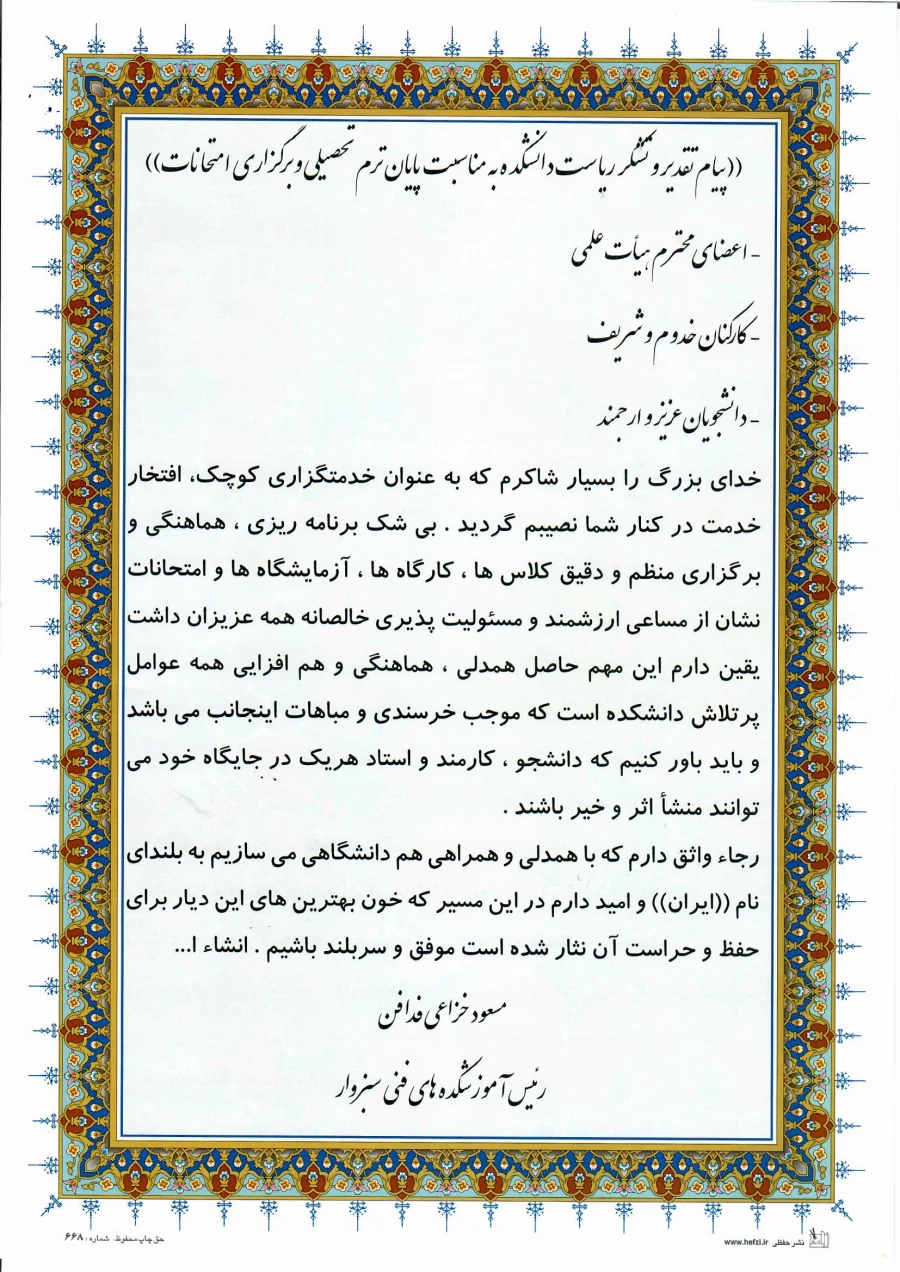 ((پیام تقدیر و تشکر ریاست دانشکده به مناسبت پایان ترم تحصیلی و برگزاری امتحانات))
- اعضای محترم هیأت علمی
- کارکنان خدوم و شریف
- دانشجویان عزیز و ارجمند
خدای بزرگ را بسیار شاکرم که به عنوان خدمتگزاری کوچک، افتخار
خدمت در کنار شما نصیبم گردید . بی شک برنامه ریزی ، هماهنگی و
برگزاری منظم و دقیق کلاس ها ، کارگاه ها ، آزمایشگاه ها و امتحانات
نشان از مساعی ارزشمند و مسئولیت پذیری خالصانه همه عزیزان داشت
یقین دارم این مهم حاصل همدلی ، هماهنگی و هم افزایی همه عوامل
پرتلاش دانشکده است که موجب خرسندی و مباهات اینجانب می باشد
و باید باور کنیم که دانشجو ، کارمند و استاد هریک در جایگاه خود می
توانند منشأ اثر و خیر باشند .
رجاء واثق دارم که با همدلی و همراهی هم دانشگاهی می سازیم به بلندای
نام ((ایران)) و امید دارم در این مسیر که خون بهترین های این دیار برای
حفظ و حراست آن نثار شده است موفق و سربلند باشیم . انشاء ا...
مسعود خزاعی فدافن
رئیس آموزشکده های فنی سبزوار
حق چاپ محفوظ. شماره: ۶۶۸
نشر حفظی www.hefzi.ir